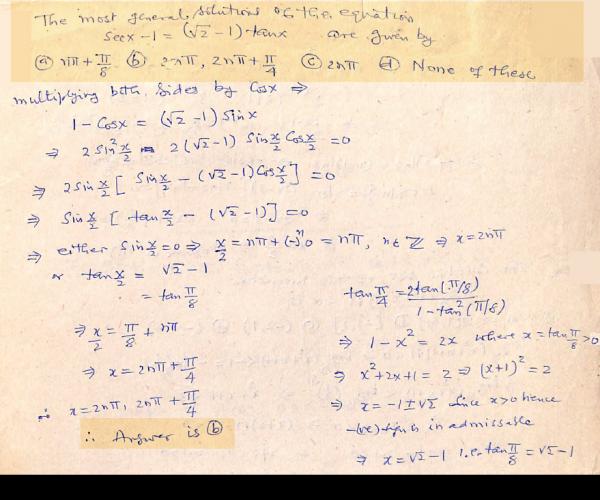 The most general solutions of the equation
secx - 1 = (√2 - 1) tanx are given by
ⓐ nπ + π/8 ⓑ 2nπ, 2nπ + π/4 ⓒ 2nπ ⓓ None of these
multiplying both sides by cosx ⇒
1 - Cosx = (√2 - 1) Sinx
⇒ 2 Sin² x/2 - 2(√2 - 1) Sin x/2 Cos x/2 = 0
⇒ 2 Sin x/2 [ Sin x/2 - (√2 - 1) Cos x/2 ] = 0
⇒ Sin x/2 [ tan x/2 - (√2 - 1) ] = 0
⇒ either Sin x/2 = 0 ⇒ x/2 = nπ + (-)ⁿ0 = nπ, n ∈ Z ⇒ x = 2nπ
or tan x/2 = √2 - 1
= tan π/8
⇒ x/2 = π/8 + nπ
⇒ x = 2nπ + π/4
∴ x = 2nπ, 2nπ + π/4
∴ Answer is ⓑ
tan π/4 = 2tan(π/8) / 1 - tan²(π/8)
⇒ 1 - x² = 2x where x = tan π/8 > 0
⇒ x² + 2x + 1 = 2 ⇒ (x+1)² = 2
⇒ x = -1 ± √2 Since x > 0 hence
-(ve) sign is in admissable
⇒ x = √2 - 1 i.e. tan π/8 = √2 - 1